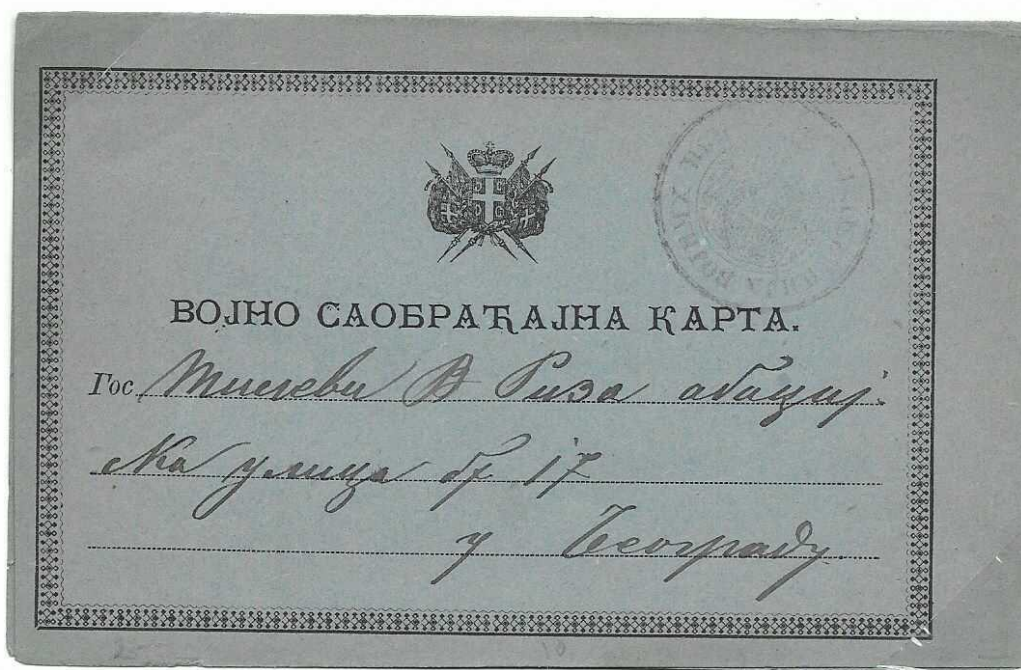 ВОЈНО САОБРАЋАЈНА КАРТА.
Гос. В Риза абаџиј-
ка улица бр 17
у Београду.